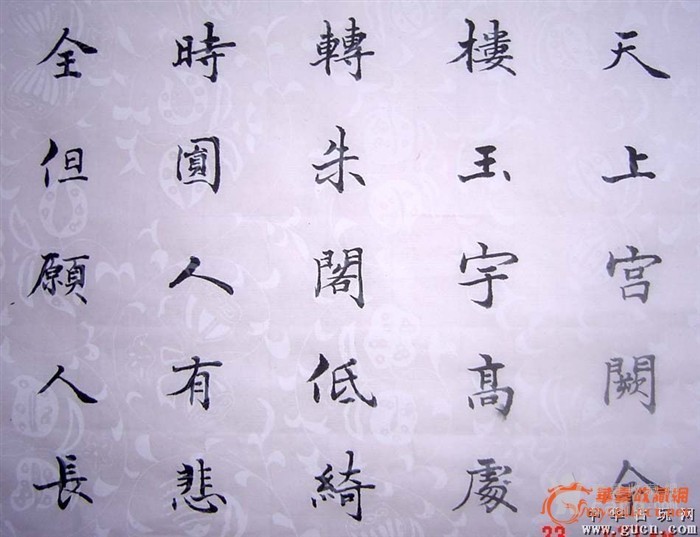 天上宮闕今
樓玉宇高處
轉朱閣低綺
時圓人有悲
全但願人長
華夏收藏网
中华古玩网
www.gucn.com